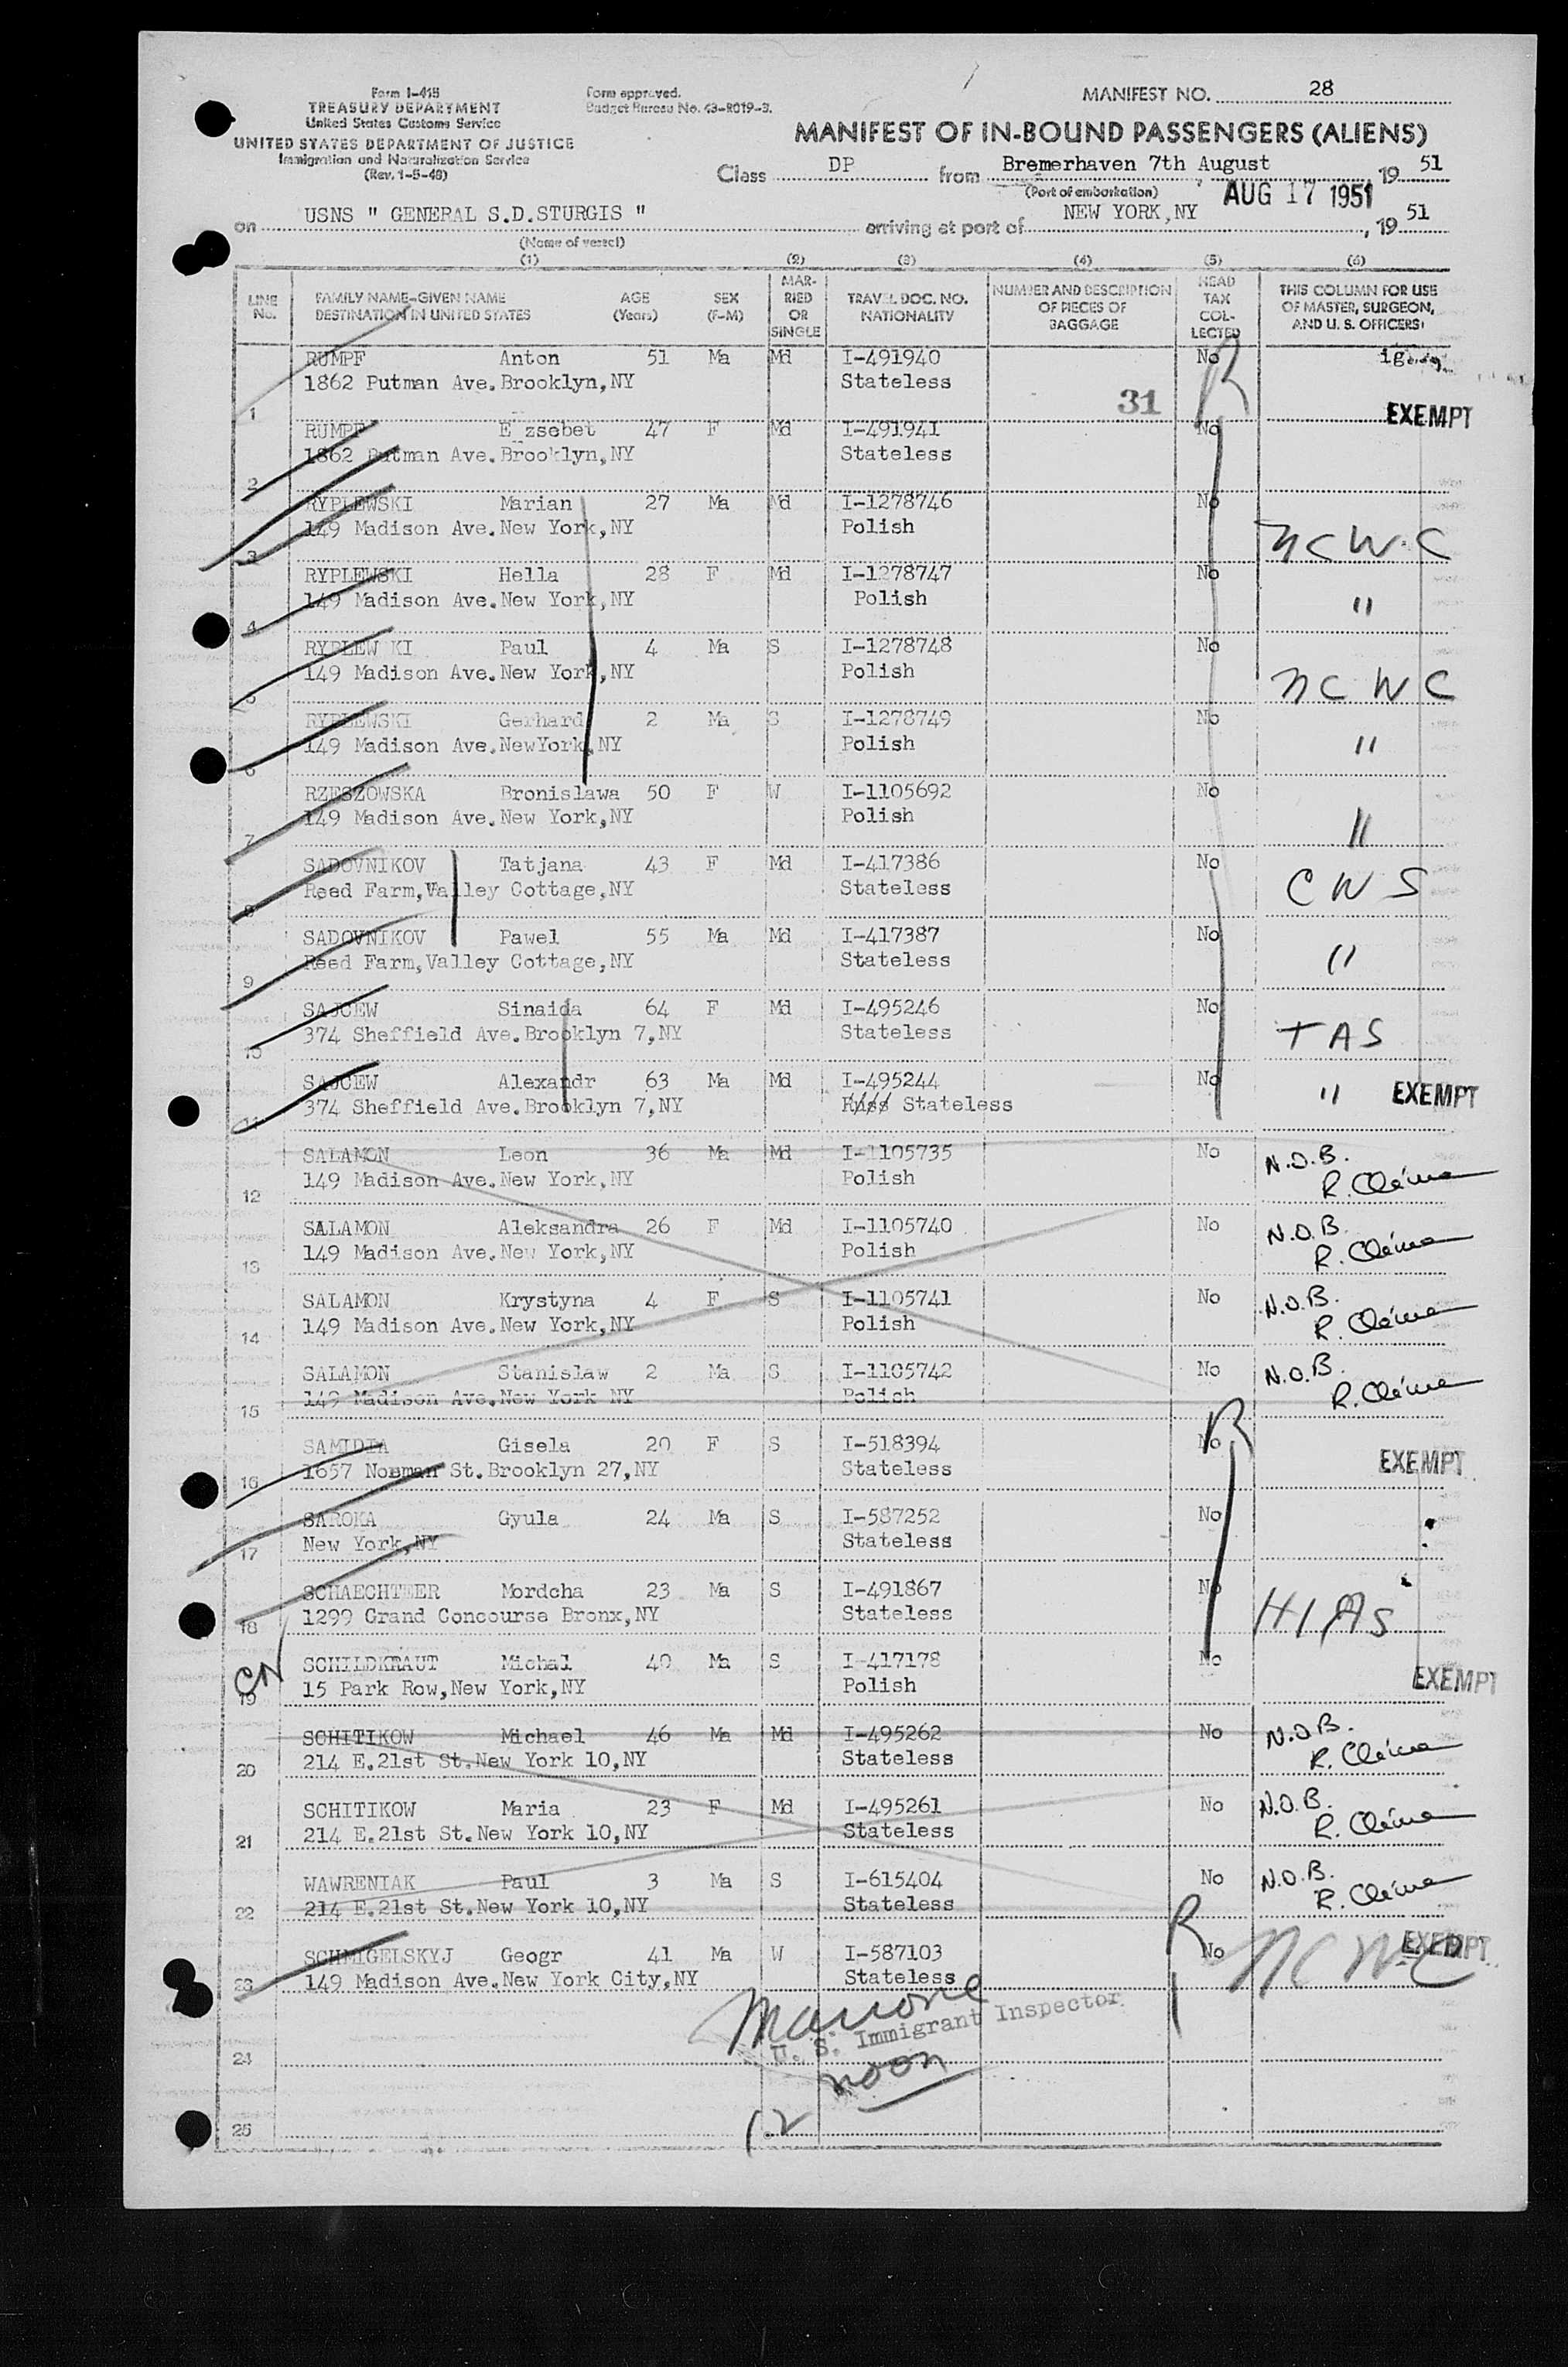 Form I-415
TREASURY DEPARTMENT
United States Customs Service
UNITED STATES DEPARTMENT OF JUSTICE
Immigration and Naturalization Service
(Rev. 1-5-48)
Form approved.
Budget Bureau No. 43-R019-3.
MANIFEST NO. 28
MANIFEST OF IN-BOUND PASSENGERS (ALIENS)
Class DP from Bremerhaven 7th August, 19 51
(Port of embarkation) AUG 17 1951
on USNS " GENERAL S.D.STURGIS " arriving at port of NEW YORK,NY, 19 51
(Name of vessel)
(1) (2) (3) (4) (5) (6)
LINE No. FAMILY NAME-GIVEN NAME DESTINATION IN UNITED STATES AGE (Years) SEX (F-M) MARRIED OR SINGLE TRAVEL DOC. NO. NATIONALITY NUMBER AND DESCRIPTION OF PIECES OF BAGGAGE HEAD TAX COLLECTED THIS COLUMN FOR USE OF MASTER, SURGEON, AND U. S. OFFICERS
RUMPF Anton 51 Ma Md I-491940 No
1862 Putman Ave.Brooklyn,NY Stateless
1 31 EXEMPT
RUMPF E zsebet 47 F Md I-491941 No
1862 Putman Ave.Brooklyn,NY Stateless
2
RYPLEWSKI Marian 27 Ma Md I-1278746 No
149 Madison Ave.New York,NY Polish
3 NCWC
RYPLEWSKI Hella 28 F Md I-1278747 No
149 Madison Ave.New York,NY Polish
4 "
RYPLEW KI Paul 4 Ma S I-1278748 No
149 Madison Ave.New York,NY Polish
5 NCWC
RYPLEWSKI Gerhard 2 Ma S I-1278749 No
149 Madison Ave.NewYork,NY Polish
6 "
RZESZOWSKA Bronislawa 50 F W I-1105692 No
149 Madison Ave.New York,NY Polish
7 "
SADOVNIKOV Tatjana 43 F Md I-417386 No
Reed Farm,Valley Cottage,NY Stateless
8 CWS
SADOVNIKOV Pawel 55 Ma Md I-417387 No
Reed Farm,Valley Cottage,NY Stateless
9 "
SAJCEW Sinaida 64 F Md I-495246 No
374 Sheffield Ave.Brooklyn 7,NY Stateless
10 TAS
SAJCEW Alexandr 63 Ma Md I-495244 No
374 Sheffield Ave.Brooklyn 7,NY Russ Stateless
11 " EXEMPT
SALAMON Leon 36 Ma Md I-1105735 No N.O.B.
149 Madison Ave.New York,NY Polish
12
SALAMON Aleksandra 26 F Md I-1105740 No N.O.B.
149 Madison Ave.New York,NY Polish
13
SALAMON Krystyna 4 F S I-1105741 No N.O.B.
149 Madison Ave.New York,NY Polish
14
SALAMON Stanislaw 2 Ma S I-1105742 No N.O.B.
149 Madison Ave.New York NY Polish
15
SAMIDIA Gisela 20 F S I-518394 No
1657 Norman St.Brooklyn 27,NY Stateless
16 EXEMPT
SAROKA Gyula 24 Ma S I-587252 No
New York,NY Stateless
17
SCHAECHTEER Mordcha 23 Ma S I-491867 No
1299 Grand Concourse Bronx,NY Stateless
18 HIAS
SCHILDKRAUT Michal 40 Ma S I-417178 No
15 Park Row,New York,NY Polish
19 EXEMPT
SCHITIKOW Michael 46 Ma Md I-495262 No N.O.B.
214 E.21st St.New York 10,NY Stateless
20
SCHITIKOW Maria 23 F Md I-495261 No N.O.B.
214 E.21st St.New York 10,NY Stateless
21
WAWRENIAK Paul 3 Ma S I-615404 No N.O.B.
214 E.21st St.New York 10,NY Stateless
22
SCHMIGELSKYJ Geogr 41 Ma W I-587103 No NCWC EXEMPT
149 Madison Ave.New York City,NY Stateless
23
U. S. Immigrant Inspector
24
12 noon
25